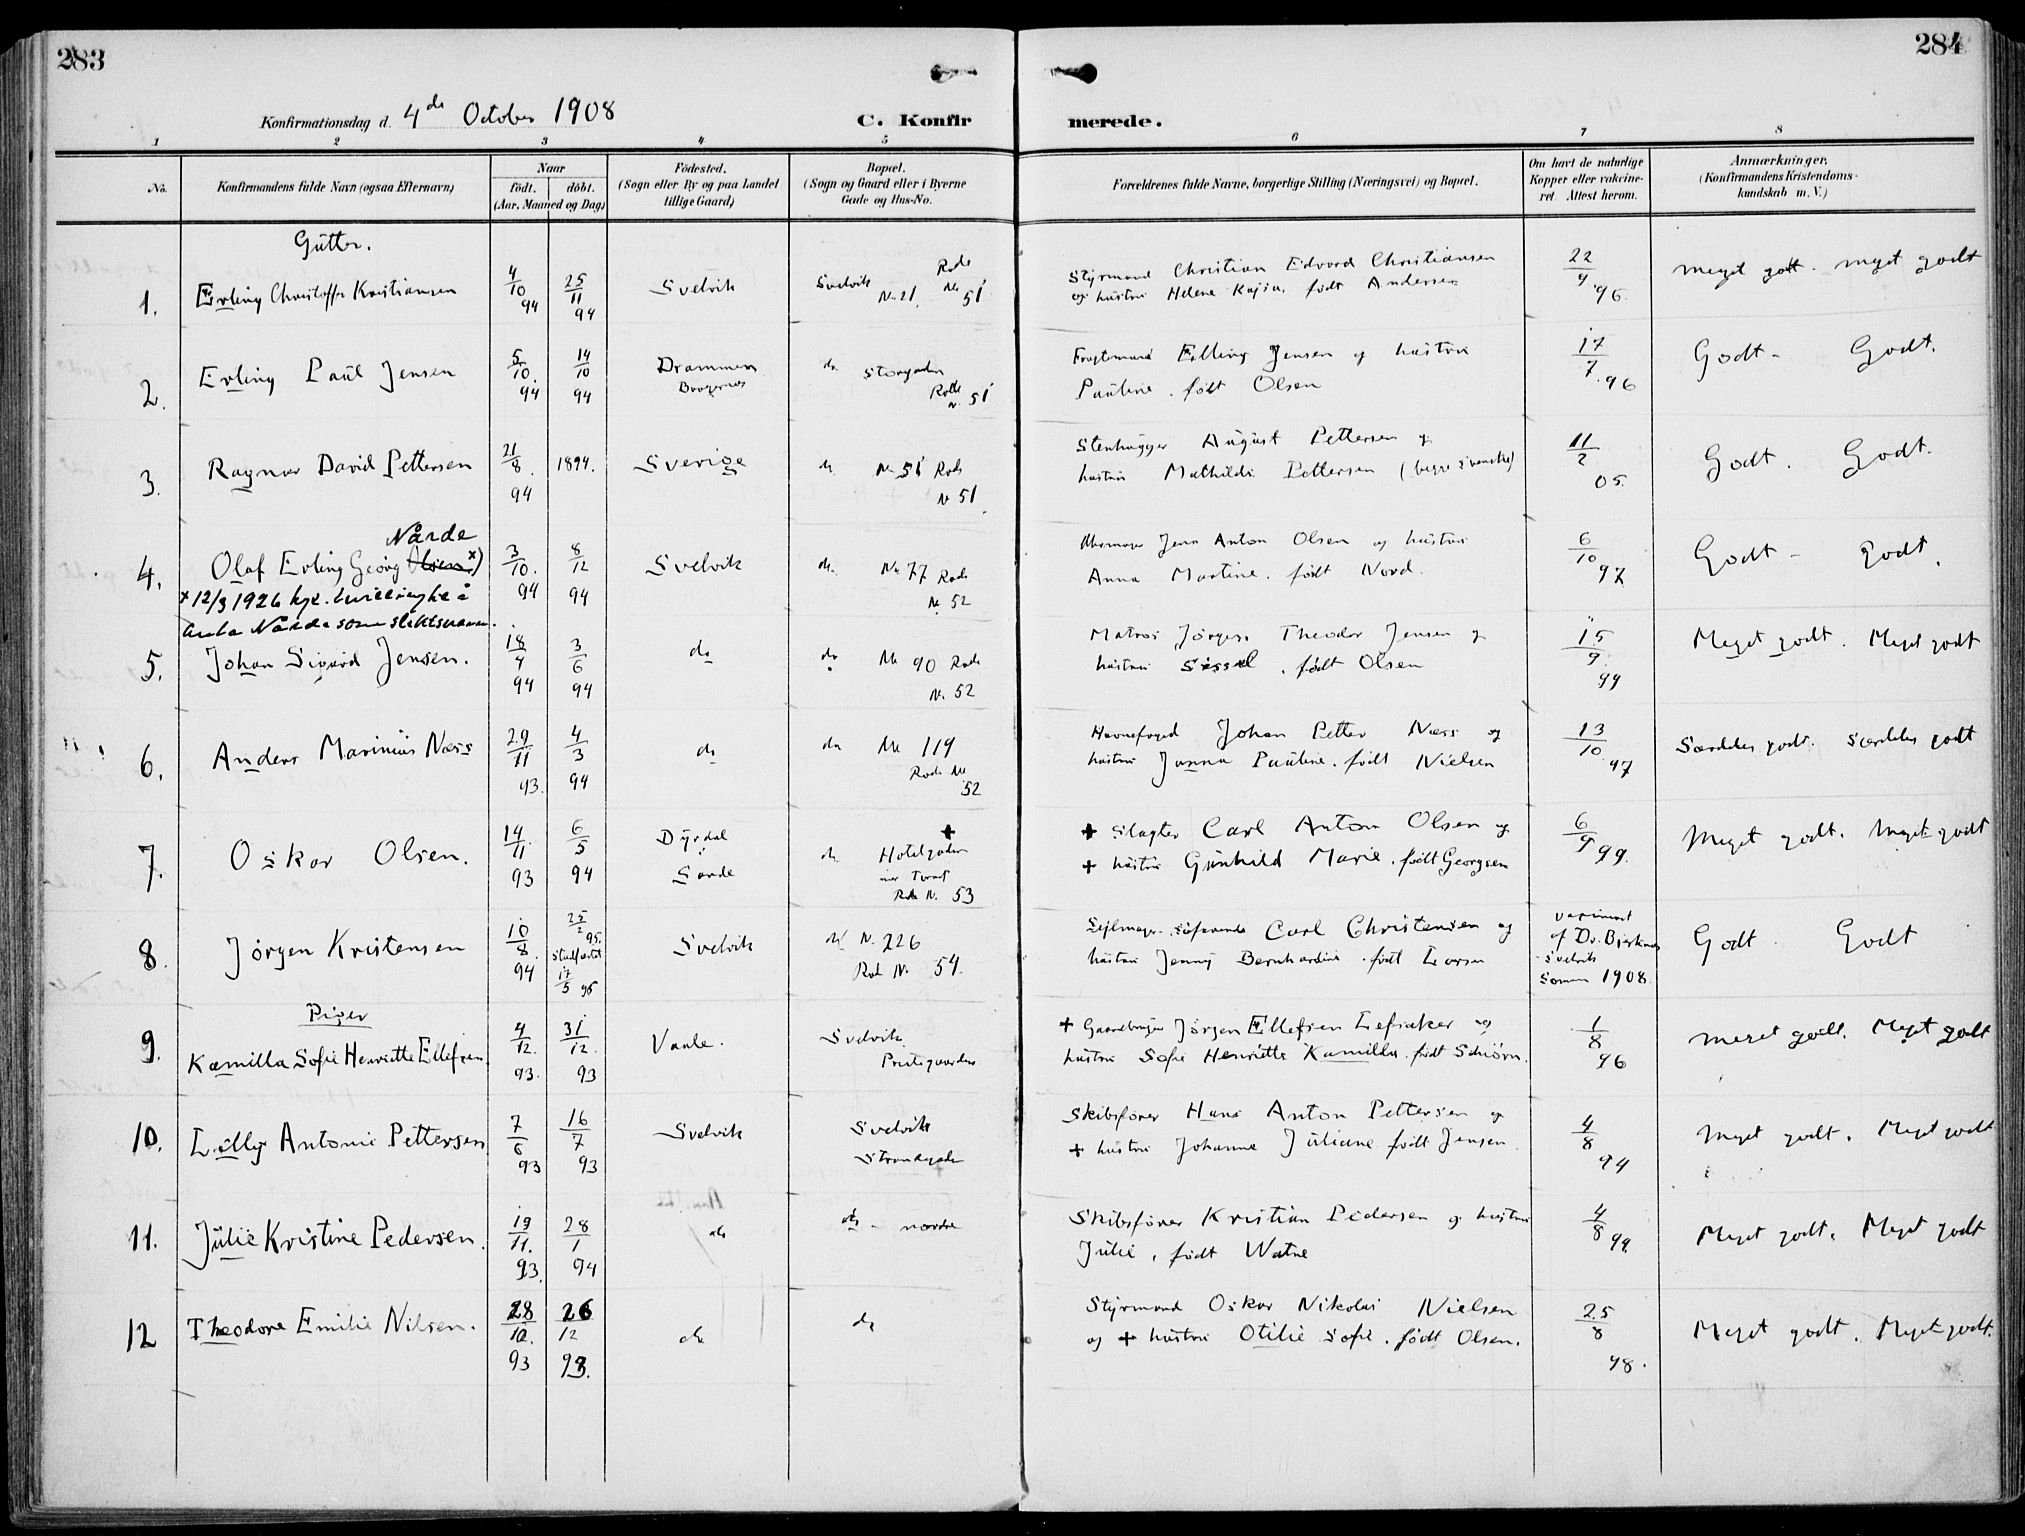 283
284
Konfirmationsdag d. 4de October 1908
C. Konfirmerede.
1 2 3 4 5 6 7 8
No.
Konfirmandens fulde Navn (ogsaa Efternavn)
Naar
födt. döbt.
(Aar, Maaned og Dag)
Födested.
(Sogn eller By og paa Landet
tillige Gaard)
Bopæl.
(Sogn og Gaard eller i Byerne
Gade og Hus-No.
Forældrenes fulde Navne, borgerlige Stilling (Næringsvei) og Bopæl.
Om havt de naturlige
Kopper eller vakcine-
ret. Attest herom.
Anmærkninger.
(Konfirmandens Kristendoms-
kundskab m. V.)
Gutter.
1. Erling Christoffer Kristiansen 4/10 94 25/11 94 Svelvik Svelvik No. 21. Rode No 51
Styrmand Christian Edvard Christiansen
og hustru Helene Kajsa, født Andersen 22/9 96. Meget godt. Meget godt
2. Erling Paul Jensen 5/10 94 14/10 94 Drammen Bragernes do Storgaden Rode N. 51
Fragtemand Elling Jensen og hustru
Pauline. født Olsen 17/7 96 Godt - Godt.
3. Ragnar David Pettersen 21/8 94 1894. Sverige do No 51 Rode No 51
Stenhugger August Pettersen og
hustru Mathilde Pettersen (begge svenske) 11/2 05. Godt. Godt.
Nårde
4. Olaf Erling Georg Olsen x) 3/10 94 8/12 94 Svelvik do No 77 Rode No 52
x 12/3 1926 kgl. bevilling til å
anta Nårde som slektsnavn.
Jens Anton Olsen og hustru
Anna Martine. født Nord. 6/10 97 Godt - Godt.
5. Johan Sigurd Jensen. 18/4 94 3/6 94 do do No 90 Rode N. 52
Matros Jörgen Theodor Jensen og
hustru Sissel. født Olsen 15/9 99 Meget godt. Meget godt
6. Anders Marinius Næss 29/11 93. 4/3 94 do do No 119 Rode No 52
Havnefoged Johan Petter Næss og
hustru Janna Pauline. født Nielsen 13/10 97 Særdeles godt. Særdeles godt
7. Oskar Olsen. 14/11 93 6/5 94 Dyrdal Sande do Hotelgaden Rode N. 53
+ Slagter Carl Anton Olsen og
+ hustru Gunhild Marie. født Georgsen 6/9 99. Meget godt. Meget godt
8. Jörgen Kristensen 10/8 94 25/2 95. stadfæstet 17/5 95 Svelvik do N. 226 Rode No 54.
Carl Christensen og
hustru Jenny Bernhardine. født Larsen vaccineret af Dr. Bjerknes Svelvik Sommer 1908. Godt Godt
Piger
9. Kamilla Sofie Henriette Ellefsen. 4/12. 93. 31/12. 93 Vaale. Svelvik. Prestegaarden
+ Gaardbruger Jörgen Ellefsen Lefsaker og
hustru Sofie Henriette Kamilla. født Schiörn. 1/8 96 Meget godt. Meget godt
10. Lilly Antonie Pettersen 7/6 93 16/7 93 Svelvik Svelvik Strandgaden
Skibsfører Hans Anton Pettersen og
+ hustru Johanne Juliane født Jensen. 4/8 94 Meget godt. Meget godt
11. Julie Kristine Pedersen. 19/11. 93. 28/1 94 do do - nordre
Skibsfører Kristian Pedersen og hustru
Julie, født Watne 4/8 99. Meget godt. Meget godt
12 Theodore Emilie Nilsen. 28/10. 93 26/12 93. do do
Styrmand Oskar Nikolai Nielsen
og + hustru Otilie Sofie. født Olsen. 25/8 98. Meget godt. Meget godt.